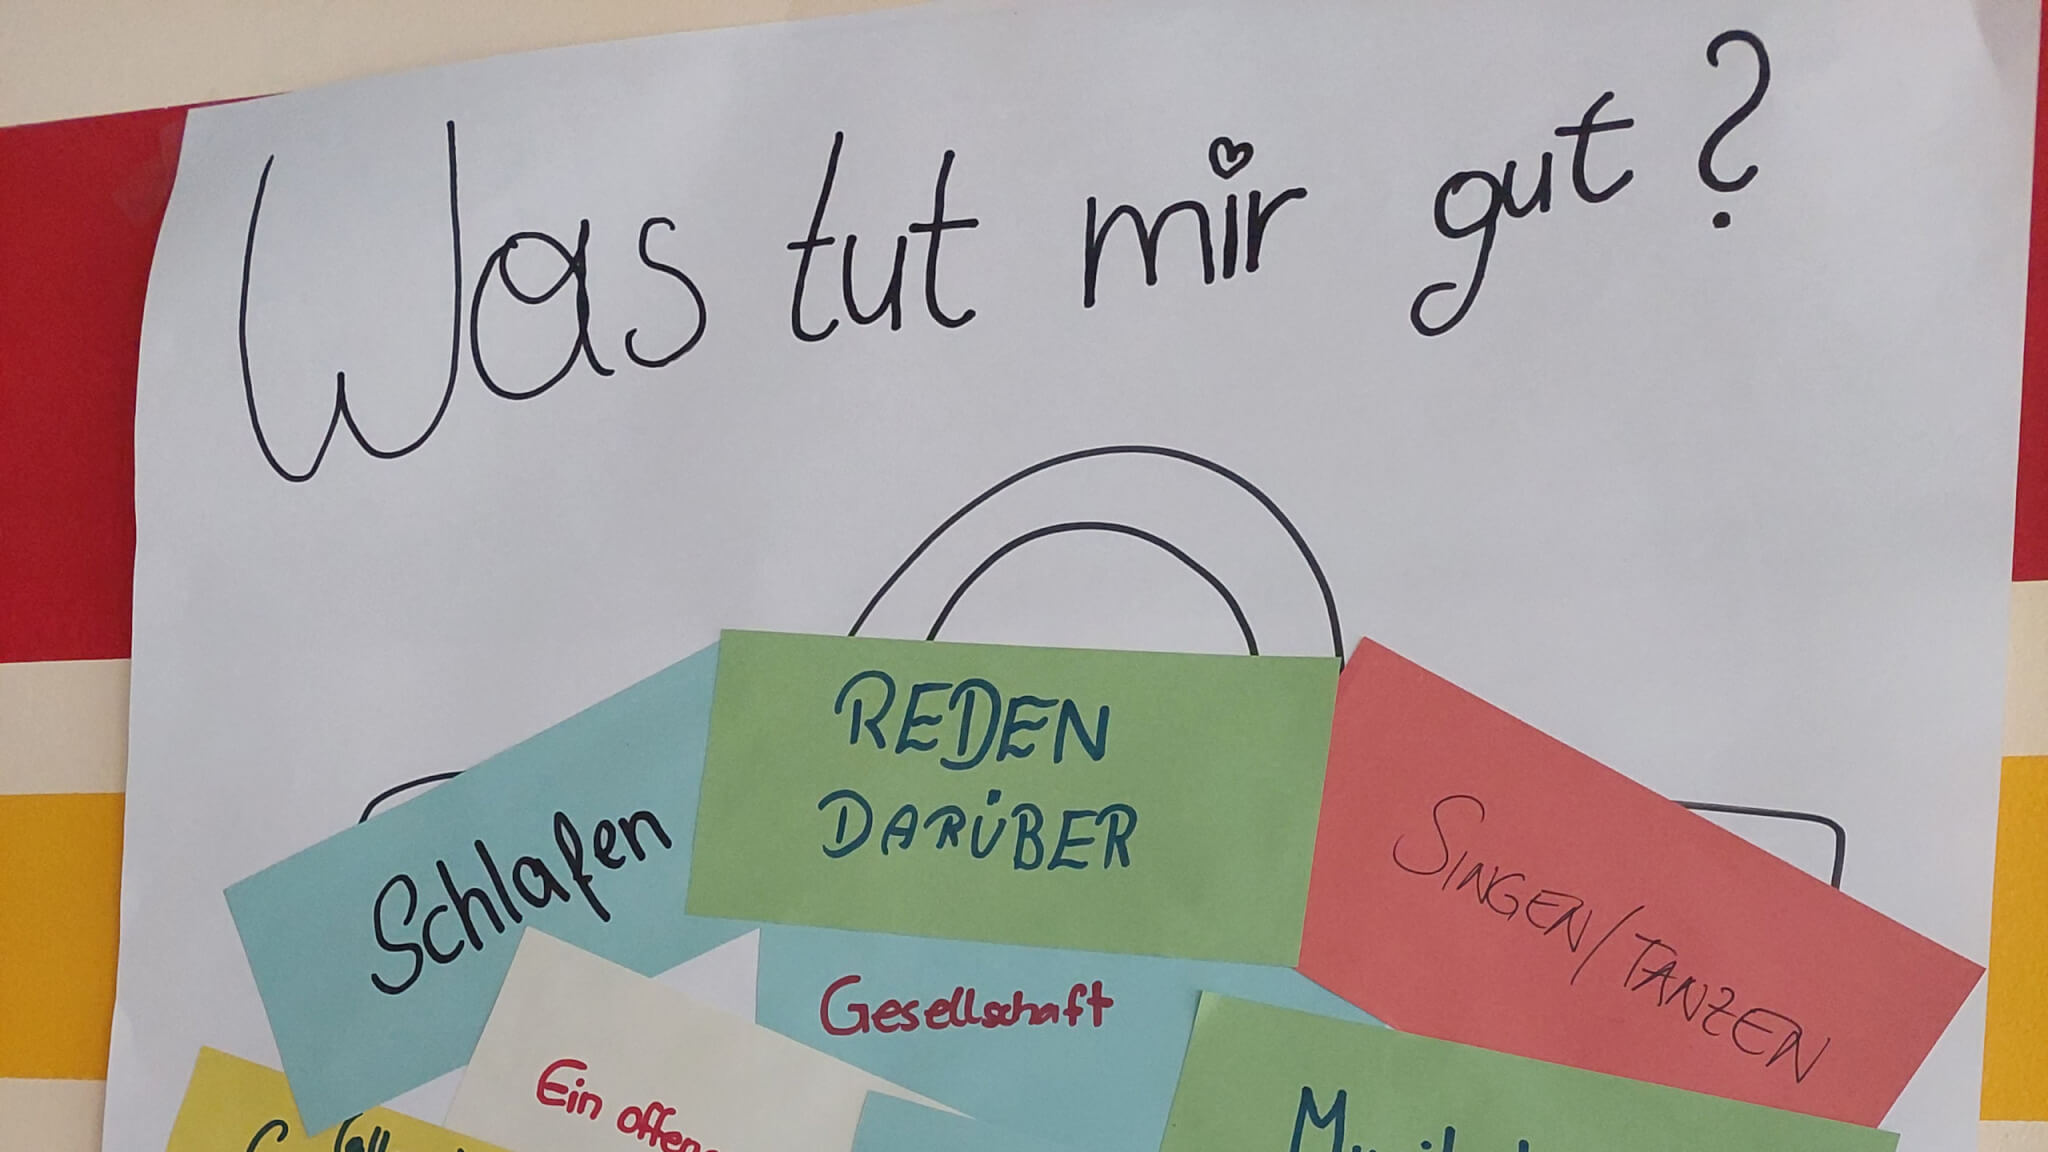 Was tut mir gut?
REDEN
DARÜBER
Schlafen
SINGEN/TANZEN
Gesellschaft
Ein